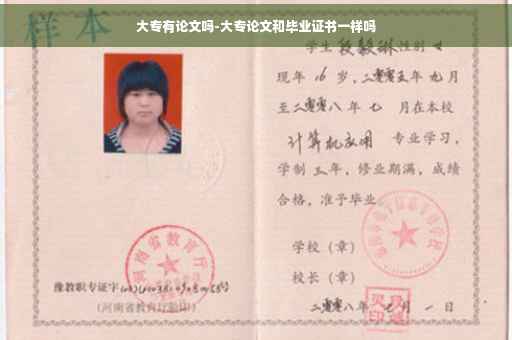 大专有论文吗-大专论文和毕业证书一样吗
样本
学生 段毅琳 性别 女
现年 16 岁，二零零五年 九月
至二零零八年 七 月在本校
计算机应用 专业学习，
学制 三年，修业期满，成绩
合格，准予毕业。
学校（章）
校长（章）
二零零八年 七月 一日
河南省教育厅
豫教职专证字
(河南省教育厅验印)